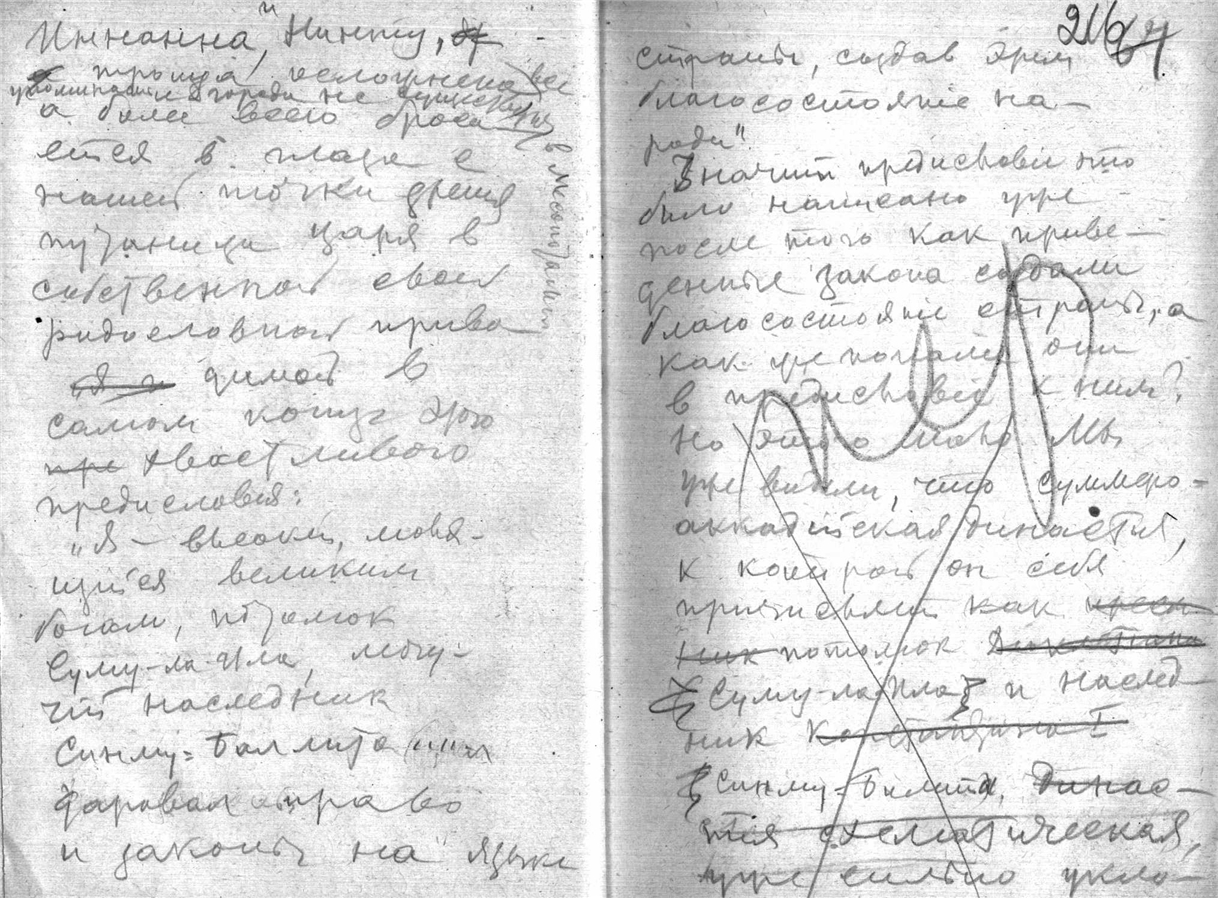 Иннанна, и Нинту,
троица, осложнена все
упоминание о городе не
а более всего броса
ется в глаза с
нашей точки зрения
путаница царя в
собственной своей
родословной приво
димой в
самом конце этого
хвастливого
предисловия:
„Я — высокий, моля-
щийся великим
богам, потомок
Суму-ла-Ила, могу-
чий наследник
Синму-Баллита
даровал право
и законы на языке
в Месопотамии
216
страны, создав этим
благосостояние на-
рода"
Значит предисловие это
было написано уже
после того как приве-
денные закона создали
благосостояние страны, а
как же попали они
в предисловие к ним?
Но этого мало Мы
уже видели, что суммеро-
аккадийская династия,
к которой он себя
приписывал как
ник потомок
Суму-ла-Ила и наслед-
ник Константина I
Синму-Балита, Динас-
тия схематическая,
уже сильно укло-